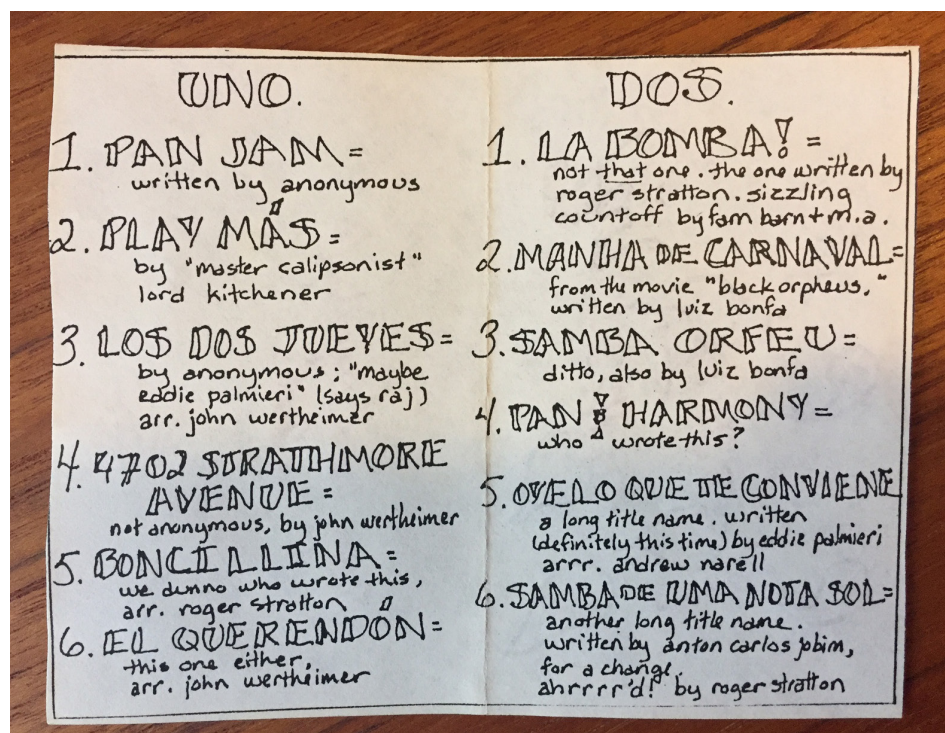 UNO.
1. PAN JAM =
written by anonymous
2. PLAY MÁS =
by "master calipsonist"
lord kitchener
3. LOS DOS JUEYES =
by anonymous; "maybe
eddie palmieri" (says raj)
arr. john wertheimer
4. 4702 STRATHMORE
AVENUE =
not anonymous, by john wertheimer
5. BONCILLIÑA =
we dunno who wrote this,
arr. roger stratton
6. EL QUERENDÓN =
this one either,
arr. john wertheimer
DOS.
1. LA BOMBA! =
not that one. the one written by
roger stratton. sizzling
countoff by fam barn + m.a.
2. MANHA DE CARNAVAL =
from the movie "black orpheus,"
written by luiz bonfa
3. SAMBA ORFEU =
ditto, also by luiz bonfa
4. PAN HARMONY =
who wrote this?
5. OYE LO QUE TE CONVIENE
a long title name. written
(definitely this time) by eddie palmieri
arrr. andrew narell
6. SAMBA DE UMA NOTA SOL =
another long title name.
written by anton carlos jobim,
for a change.
ahrrrr'd! by roger stratton